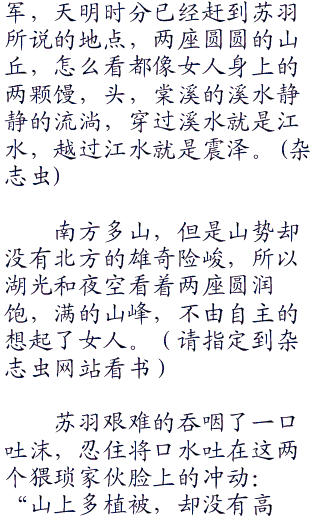 军，天明时分已经赶到苏羽
所说的地点，两座圆圆的山
丘，怎么看都像女人身上的
两颗馒，头，棠溪的溪水静
静的流淌，穿过溪水就是江
水，越过江水就是震泽。(杂
志虫)
南方多山，但是山势却
没有北方的雄奇险峻，所以
湖光和夜空看着两座圆润
饱，满的山峰，不由自主的
想起了女人。（请指定到杂
志虫网站看书）
苏羽艰难的吞咽了一口
吐沫，忍住将口水吐在这两
个猥琐家伙脸上的冲动：
“山上多植被，却没有高